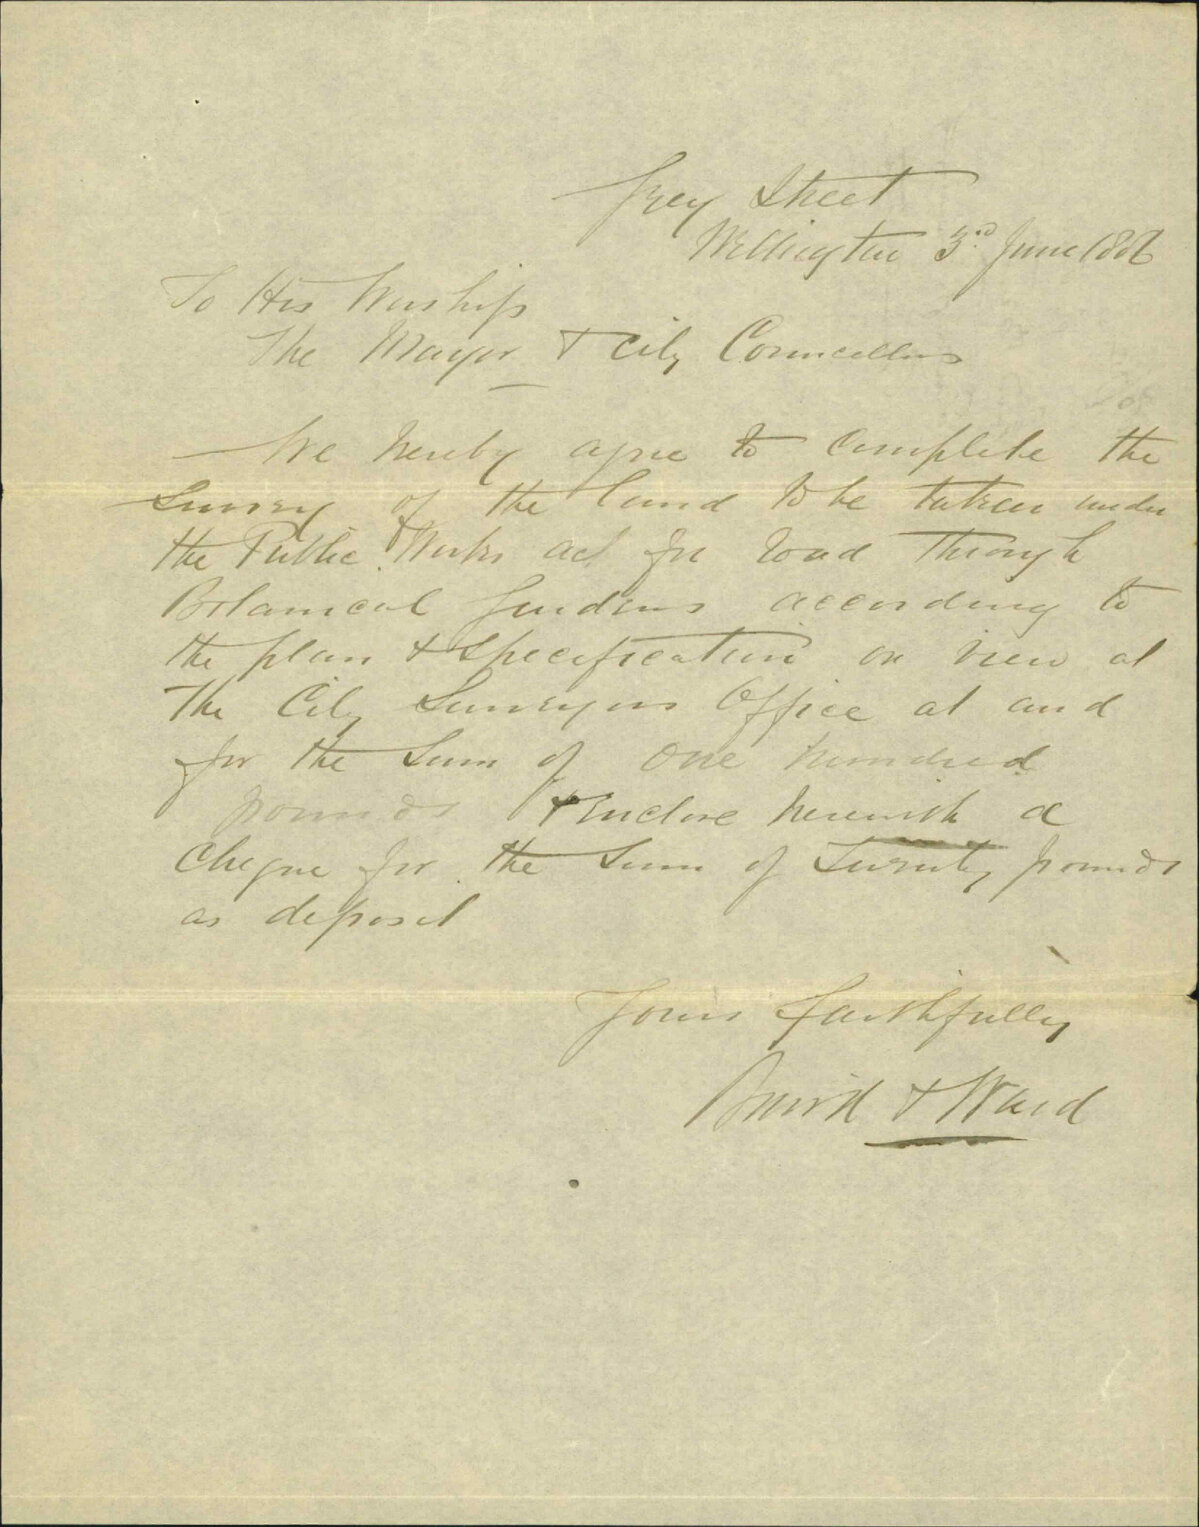 Grey Street
Wellington 3rd June 1886
To His Worship
The Mayor & City Councellors
We hereby agree to complete the
Survey of the land to be taken under
the Public Works act for road through
Botanical Gardens according to
the plan & Specification on view at
The City Surveyors Office at and
for the Sum of One hundred
pounds & Enclose herewith a
Cheque for the Sum of Twenty pounds
as deposit
Yours faithfully
& Ward